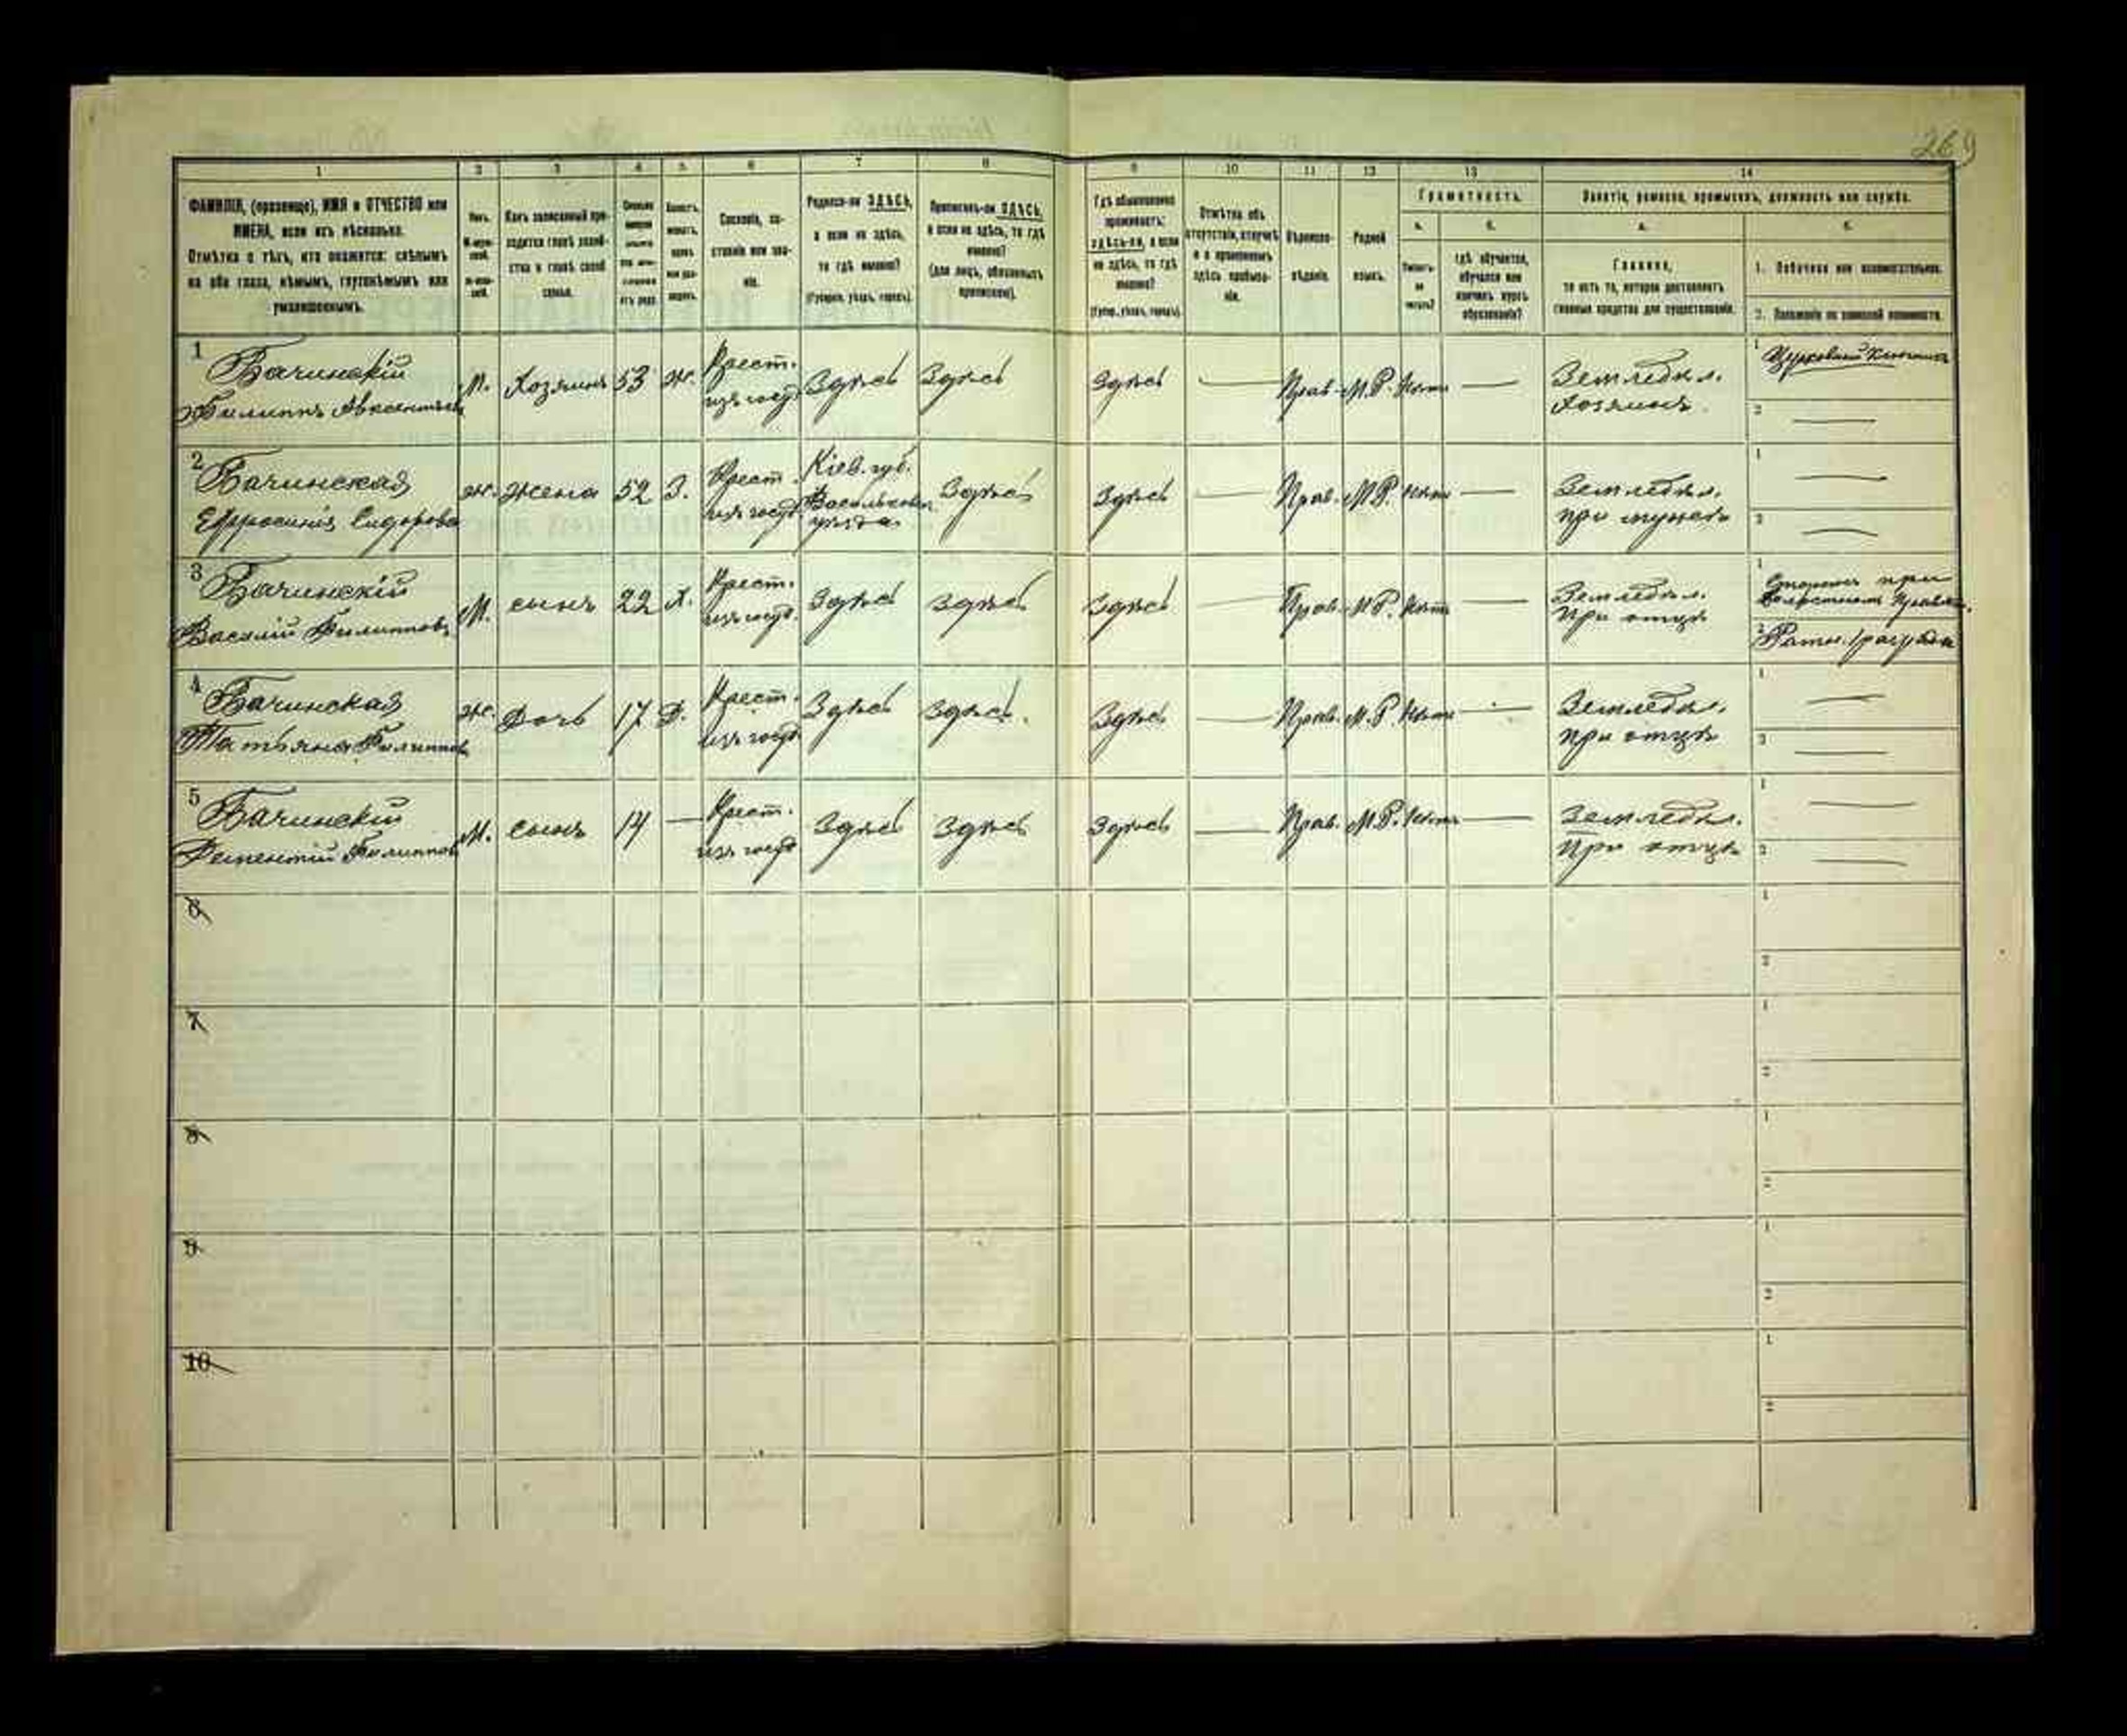 269
1 2 3 4 5. 6 7 8 9 10 11 12 13 14
ФАМИЛІЯ, (прозвище), ИМЯ и ОТЧЕСТВО или
ИМЕНА, если ихъ нѣсколько.
Отмѣтка о тѣхъ, кто окажется: слѣпымъ
на оба глаза, нѣмымъ, глухонѣмымъ или
умалишеннымъ.
Полъ.
М-муж-
ской.
ж-жен-
скій.
Какъ записанный при-
ходится главѣ хозяй-
ства и главѣ своей
семьи.
Сословіе, со-
стояніе или зва-
ніе.
Родился-ли ЗДѢСЬ,
а если не здѣсь,
то гдѣ именно?
(Губернія, уѣздъ, городъ).
Приписанъ-ли ЗДѢСЬ,
а если не здѣсь, то гдѣ
именно?
(для лицъ, обязанныхъ
припискою).
Гдѣ обыкновенно
проживаетъ:
здѣсь-ли, а если
не здѣсь, то гдѣ
именно?
(Губер., уѣздъ, городъ).
Отмѣтка объ
отсутствіи, отлучкѣ
и о временномъ
здѣсь пребыва-
ніи.
Вѣроиспо-
вѣданіе.
Родной
языкъ.
Грамотность.
а. б.
Умѣетъ-
ли
читать?
гдѣ обучается,
обучался или
кончилъ курсъ
образованія?
Занятіе, ремесло, промыселъ, должность или служба.
а. б.
Главное,
то есть то, которое доставляетъ
главныя средства для существованія.
1. Побочное или вспомогательное.
2. Положеніе по воинской повинности.
1
Бачинскій
Филиппъ Авксентьевъ
М. Хозяинъ 53 ж.
Крест.
изъ госуд.
Здѣсь Здѣсь Здѣсь — Прав. М.Р. Нѣтъ —
Земледѣл.
Хозяинъ.
1 Церковный
2 —
2
Бачинская
Ефросинія Сидорова
ж. Жена 52 З.
Крест.
изъ госуд.
Кіев. губ.
Васильков.
уѣзда
Здѣсь Здѣсь — Прав. М.Р. Нѣтъ —
Земледѣл.
при мужѣ
1 —
2 —
3
Бачинскій
Василій Филипповъ
М. сынъ 22 Х.
Крест.
изъ госуд.
Здѣсь Здѣсь Здѣсь — Прав. М.Р. Нѣтъ —
Земледѣл.
При отцѣ
1 Сторожъ при
Волостномъ Правлен.
2 Ратн. 1 разряда
4
Бачинская
Татьяна Филиппова
ж. Дочь 17 Д.
Крест.
изъ госуд.
Здѣсь Здѣсь. Здѣсь — Прав. М.Р. Нѣтъ —
Земледѣл.
при отцѣ
1 —
2 —
5
Бачинскій
Филипповъ
М. сынъ 14 —
Крест.
изъ госуд.
Здѣсь Здѣсь Здѣсь — Прав. М.Р. Нѣтъ —
Земледѣл.
При отцѣ
1 —
2 —
6 1
2
7 1
2
8 1
2
9 1
2
10 1
2